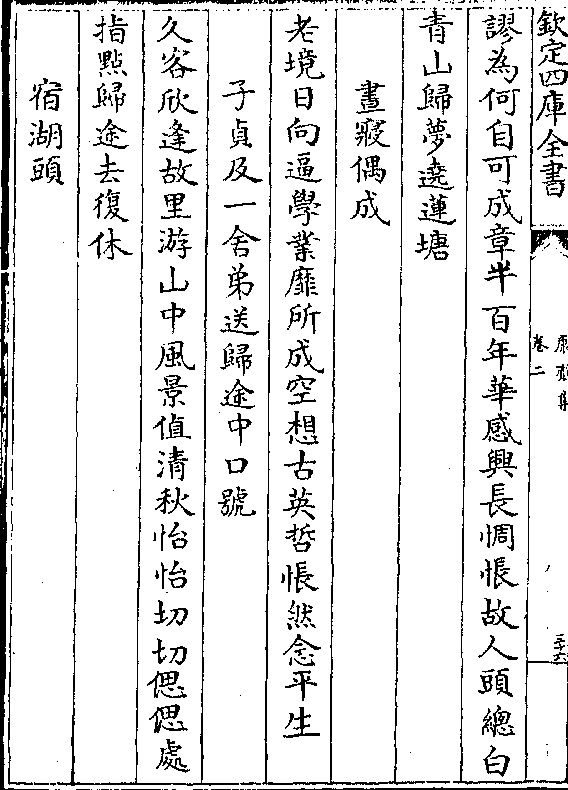 欽定四庫全書
卷二
三十六
謬為何自可成章半百年華感興長惆悵故人頭總白
青山歸夢遶蓮塘
晝寢偶成
老境日向逼學業靡所成空想古英哲悵然念平生
子貞及一舍弟送歸途中口號
久客欣逢故里游山中風景值清秋怡怡切切偲偲處
指點歸途去復休
宿湖頭